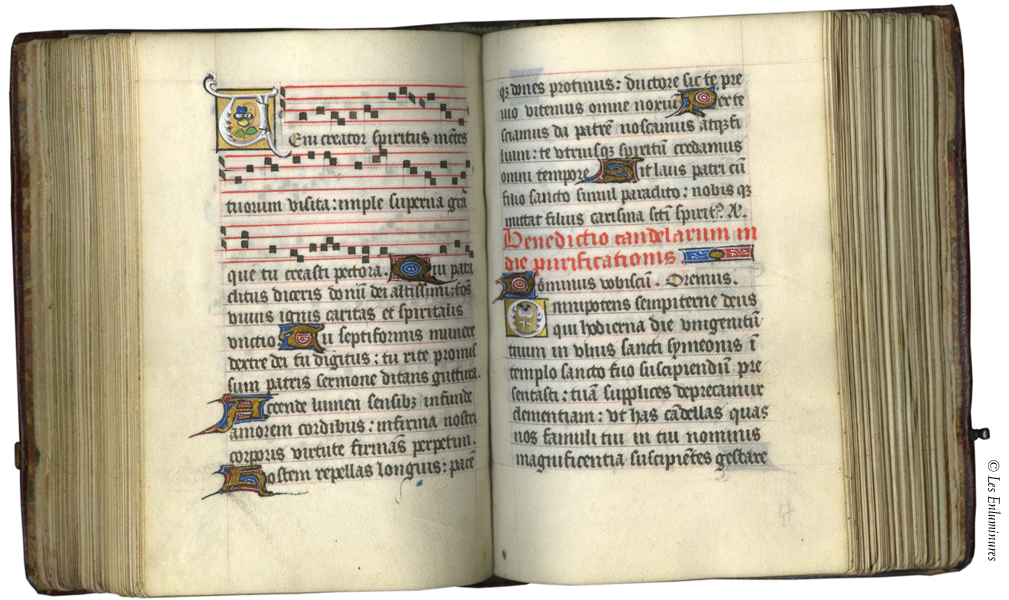 Veni creator spiritus mētes
tuorum visita: imple superna grā
que tu creasti pectora. Qui para
clitus diceris donū dei altissimi: fōs
viuus ignis caritas et spiritalis
vnctio. Tu septiformis munere
dextre dei tu digitus: tu rite promis
sum patris sermone ditans guttura.
Accende lumen sensibꝫ infunde
amorem cordibus: infirma nostri
corporis virtute firmās perpetim.
Hostem repellas longius: pacē
qꝫ dones protinus: ductore sic te pre
uio vitemus omne noxiū Per te
sciamus da patrē noscamus atqꝫ fi
lium: te vtriusqꝫ spiritū credamus
omni tempore Sit laus patri cū
filio sancto simul paraclito: nobis qꝫ
mittat filius carisma scti spirit?
Benedictio candelarum in
die purificationis
Dominus vobiscū. Oremus.
Omnipotens sempiterne deus
qui hodierna die vnigenitū
tuum in vlnis sancti symeonis ī
templo sancto tuo suscipiendū pre
sentasti: tuā supplices deprecamur
clementiam: vt has cādellas quas
nos famuli tui in tui nominis
magnificentia suscipiētes gestare
© Les Enluminures